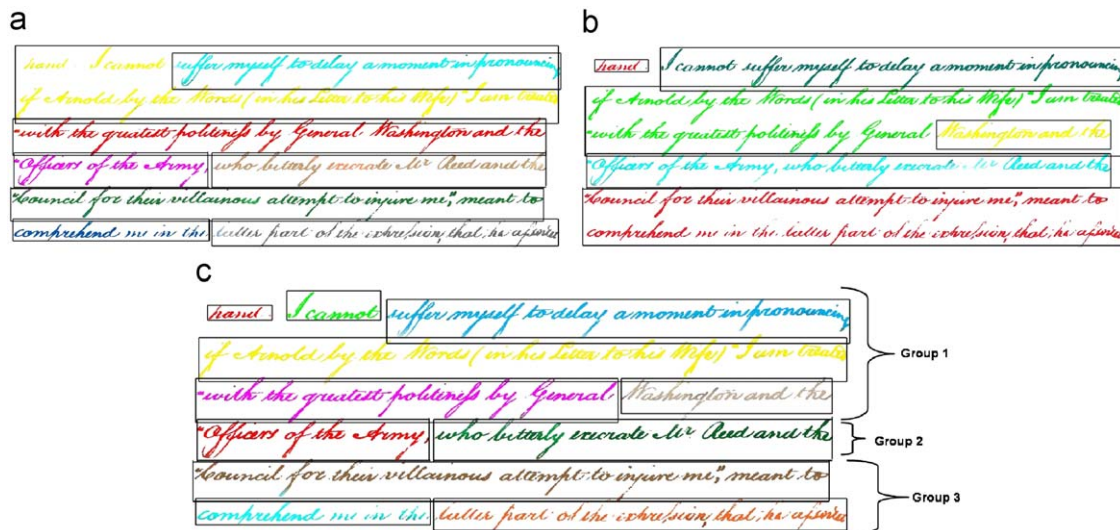 a
hand. I cannot suffer myself to delay a moment in pronouncing
if Arnold by the Words (in his Letter to his Wife) "I am treated
"with the greatest politeness by General Washington and the
"Officers of the Army, who bitterly execrate Mr Reed and the
"Council for their villainous attempt to injure me," meant to
comprehend me in the latter part of the expression, that, he asserted
b
hand. I cannot suffer myself to delay a moment in pronouncing
if Arnold by the Words (in his Letter to his Wife) "I am treated
"with the greatest politeness by General Washington and the
"Officers of the Army, who bitterly execrate Mr Reed and the
"Council for their villainous attempt to injure me," meant to
comprehend me in the latter part of the expression, that, he asserted
c
hand. I cannot suffer myself to delay a moment in pronouncing
if Arnold by the Words (in his Letter to his Wife) "I am treated
"with the greatest politeness by General Washington and the
Group 1
"Officers of the Army, who bitterly execrate Mr Reed and the
Group 2
"Council for their villainous attempt to injure me," meant to
comprehend me in the latter part of the expression, that, he asserted
Group 3